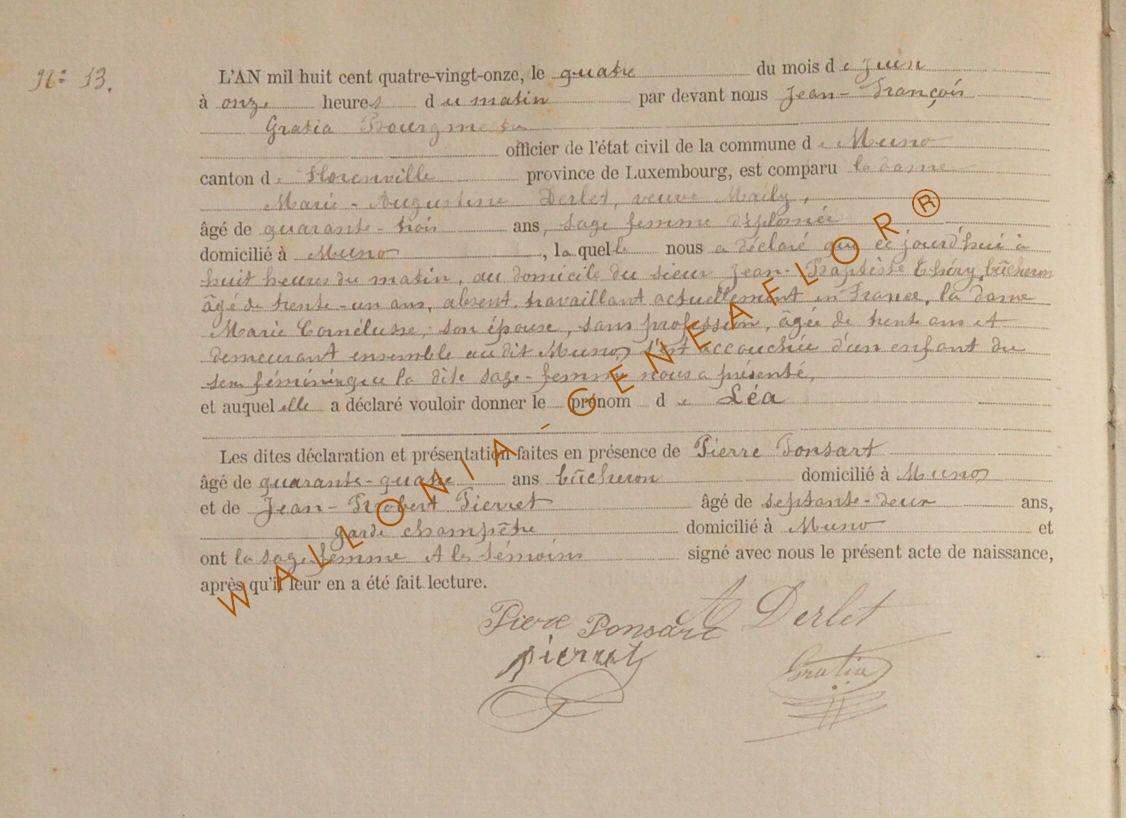 N° 13.
L'AN mil huit cent quatre-vingt-onze, le quatre du mois de juin
à onze heures du matin par devant nous Jean-François
Gratia Bourgmestre
officier de l'état civil de la commune de Muno
canton de Florenville province de Luxembourg, est comparu la dame
Marie-Augustine Derlet, veuve Maily,
âgé de quarante-trois ans, sage femme diplomée
domicilié à Muno, laquelle nous a déclaré que ce jourd'hui à
huit heures du matin, au domicile du sieur Jean-Baptiste Théry, bûcheron
âgé de trente-un ans, absent, travaillant actuellement en France, la dame
Marie Cornélusse, son épouse, sans profession, âgée de trente ans et
demeurant ensemble au dit Muno, s'est accouchée d'un enfant du
sexe féminin que la dite sage-femme nous a présenté,
et auquel elle a déclaré vouloir donner le prénom de Léa
Les dites déclaration et présentation faites en présence de Pierre Ponsart
âgé de quarante-quatre ans bûcheron domicilié à Muno
et de Jean-Robert Pierret âgé de septante-deux ans,
garde champêtre domicilié à Muno et
ont la sage femme et les témoins signé avec nous le présent acte de naissance,
après qu'il leur en a été fait lecture.
Piere Ponsart A Derlet
Pierret Gratia
WALLONIA-GENEAFLOR®